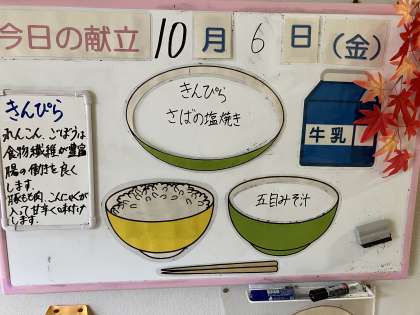 今日の献立 10月6日(金)
きんぴら
さばの塩焼き
牛乳
五目みそ汁
きんぴら
れんこん、ごぼうは
食物繊維が豊富
腸の働きを良く
します。
豚もも肉、こんにゃくが
入って甘辛く味付け
します。